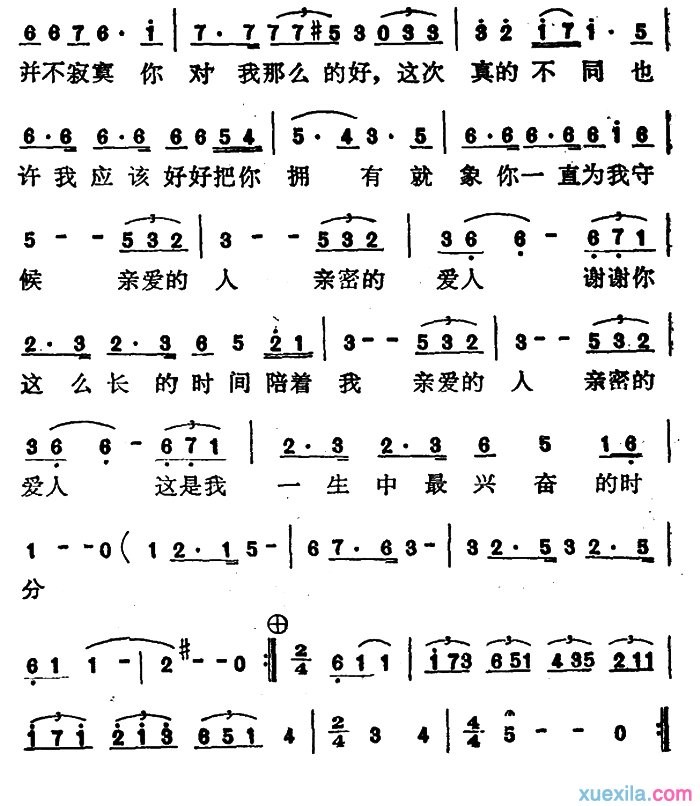 6 6 7 6· i | 7· 7 7 7 #5 3 0 3 3 | 3 2 i 7 i· 5
并不寂寞 你 对 我那么 的好,这次 真的 不 同 也
6·6 6·6 6 6 5 4 | 5·4 3·5 | 6·6·6·6 i 6
许我 应该 好好把你 拥 有 就 象你一直为我守
5 - - 5 3 2 | 3 - - 5 3 2 | 3 6 6 - 6 7 1
候 亲爱的 人 亲密的 爱人 谢谢你
2·3 2·3 6 5 2 1 | 3 - - 5 3 2 | 3 - - 5 3 2
这 么 长 的 时 间 陪着 我 亲爱的 人 亲密的
3 6 6 - 6 7 1 | 2·3 2·3 6 5 1 6
爱人 这是我 一 生 中 最 兴 奋 的时
1 - - 0 ( 1 2·1 5 - | 6 7·6 3 - | 3 2·5 3 2·5
分
6 1 1 - | 2 #- - 0 :‖ 2/4 6 1 1 | i 7 3 6 5 1 4 3 5 2 1 1
i 7 i 2 i 3 6 5 1 4 | 2/4 3 4 | 4/4 5 - - 0 :‖
xuexila.com